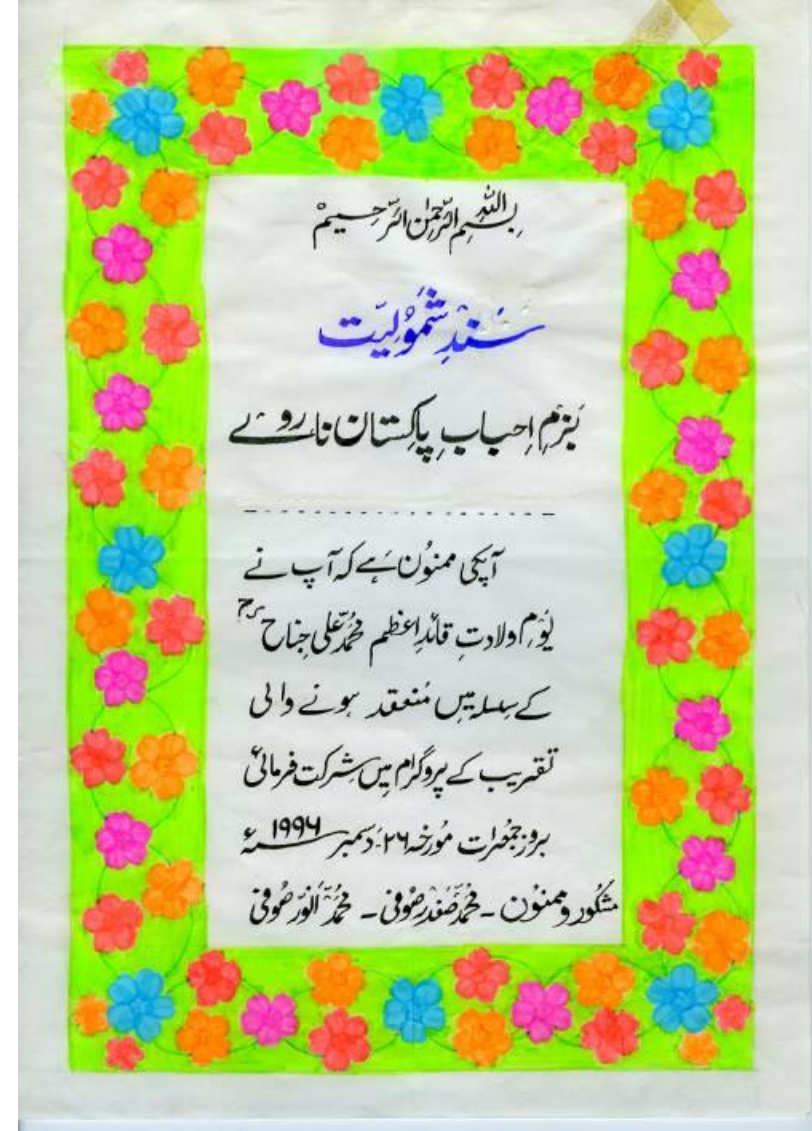 بِسْمِ اللهِ الرَّحْمٰنِ الرَّحِيْمْ
سَنَدِ شمُولیّت
بَزمِ احبابِ پاکستان ناروے
آپکی ممنُون ہَے کہ آپ نے
یَومِ ولادتِ قائدِاعظم محمّد علی جناحؒ
کے سِلسلہ میں مُنعقد ہونے والی
تقریب کے پروگرام میں شرکت فرمائی
بروز جمعرات مورخہ ۲۶؍ دسمبر ۱۹۹۶ء
مشکُور و ممنُون ۔ محمّد صَفدر صُوفی ۔ محمّد انوَر صُوفی